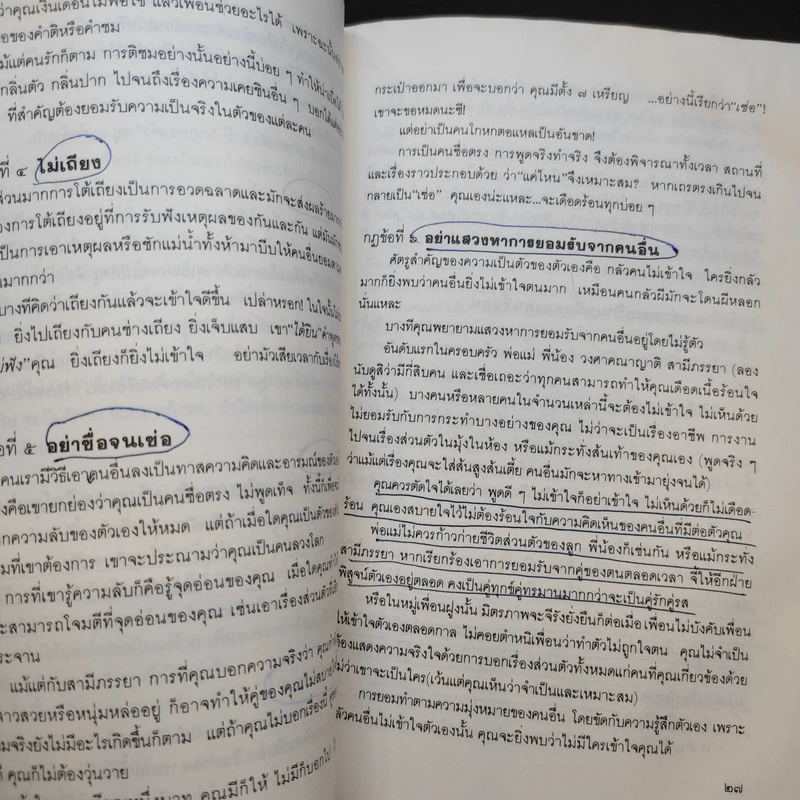 ว่าคุณเงินเดือนไม่พอใช้ แล้วเพื่อนช่วยอะไรได้ เพราะฉะนั้น
ของคำติหรือคำชม
แม้แต่คนรักก็ตาม การติชมอย่างนั้นอย่างนี้บ่อย ๆ ทำให้
กลิ่นตัว กลิ่นปาก ไปจนถึงเรื่องความเคยชินอื่น ๆ บอกได้
ที่สำคัญต้องยอมรับความเป็นจริงในตัวของแต่ละคน
ที่ ๔ ไม่เถียง
ส่วนมากการโต้เถียงเป็นการอวดฉลาดและมักจะส่งผลร้าย
ของการโต้เถียงอยู่ที่การรับฟังเหตุผลของกันและกัน แต่
เป็นการเอาเหตุผลหรือชักแม่น้ำทั้งห้ามาบีบให้คนอื่นยอม
มากกว่า
บางทีคิดว่าเถียงกันแล้วจะเข้าใจดีขึ้น เปล่าหรอก! ในใจ
ยิ่งไปเถียงกับคนช่างเถียง ยิ่งเจ็บแสบ เขา“ได้ยิน”คำพูด
คุณ ยิ่งเถียงก็ยิ่งไม่เข้าใจ อย่ามัวเสียเวลากับเรื่อง
ที่ ๕ อย่าซื่อจนเซ่อ
คนเรามีวิธีเอาคนอื่นลงเป็นทาสความคิดและอารมณ์ของ
คือเขายกย่องว่าคุณเป็นคนซื่อตรง ไม่พูดเท็จ ทั้งนี้ก็เพื่อ
ความลับของตัวเองให้หมด แต่ถ้าเมื่อใดคุณเป็นตัวของ
ที่เขาต้องการ เขาจะประณามว่าคุณเป็นคนลวงโลก
การที่เขารู้ความลับก็คือรู้จุดอ่อนของคุณ เมื่อใดคุณ
จะสามารถโจมตีที่จุดอ่อนของคุณ เช่นเอาเรื่องส่วนตัว
ประจาน
แม้แต่กับสามีภรรยา การที่คุณบอกความจริงว่า คุณ
สาวสวยหรือหนุ่มหล่ออยู่ ก็อาจทำให้คู่ของคุณไม่สบาย
จริงยังไม่มีอะไรเกิดขึ้นก็ตาม แต่ถ้าคุณไม่บอกเรื่องนี้
คุณก็ไม่ต้องวุ่นวาย
บาท คุณมีก็ให้ ไม่มีก็บอกไป
กระเป๋าออกมา เพื่อจะบอกว่า คุณมีตั้ง ๗ เหรียญ ...อย่างนี้เรียกว่า“เซ่อ”!
เขาจะขอหมดนะซี!
แต่อย่าเป็นคนโกหกตอแหลเป็นอันขาด!
การเป็นคนซื่อตรง การพูดจริงทำจริง จึงต้องพิจารณาทั้งเวลา สถานที่
และเรื่องราวประกอบด้วย ว่า“แค่ไหน”จึงเหมาะสม? หากเถรตรงเกินไปจน
กลายเป็น“เซ่อ” คุณเองน่ะแหละ...จะเดือดร้อนทุกบ่อย ๆ
กฎข้อที่ ๖ อย่าแสวงหาการยอมรับจากคนอื่น
ศัตรูสำคัญของความเป็นตัวของตัวเองคือ กลัวคนไม่เข้าใจ ใครยิ่งกลัว
มากก็ยิ่งพบว่าคนอื่นยิ่งไม่เข้าใจตนมาก เหมือนคนกลัวผีมักจะโดนผีหลอก
นั่นแหละ
บางทีคุณพยายามแสวงหาการยอมรับจากคนอื่นอยู่โดยไม่รู้ตัว
อันดับแรกในครอบครัว พ่อแม่ พี่น้อง วงศาคณาญาติ สามีภรรยา (ลอง
นับดูสิว่ามีกี่สิบคน และเชื่อเถอะว่าทุกคนสามารถทำให้คุณเดือดเนื้อร้อนใจ
ได้ทั้งนั้น) บางคนหรือหลายคนในจำนวนเหล่านี้จะต้องไม่เข้าใจ ไม่เห็นด้วย
ไม่ยอมรับกับการกระทำบางอย่างของคุณ ไม่ว่าจะเป็นเรื่องอาชีพ การงาน
ไปจนเรื่องส่วนตัวในมุ้งในห้อง หรือแม้กระทั่งส้นเท้าของคุณเอง (พูดจริง ๆ
ว่าแม้แต่เรื่องคุณจะใส่ส้นสูงส้นเตี้ย คนอื่นมักจะหาทางเข้ามายุ่งจนได้)
คุณควรตัดใจได้เลยว่า พูดดี ๆ ไม่เข้าใจก็อย่าเข้าใจ ไม่เห็นด้วยก็ไม่เดือด-
ร้อน คุณเองสบายใจไว้ไม่ต้องร้อนใจกับความคิดเห็นของคนอื่นที่มีต่อตัวคุณ
พ่อแม่ไม่ควรก้าวก่ายชีวิตส่วนตัวของลูก พี่น้องก็เช่นกัน หรือแม้กระทั่ง
สามีภรรยา หากเรียกร้องเอาการยอมรับจากคู่ของตนตลอดเวลา จี้ให้อีกฝ่าย
พิสูจน์ตัวเองอยู่ตลอด คงเป็นคู่ทุกข์คู่ทรมานมากกว่าจะเป็นคู่รักคู่รส
หรือในหมู่เพื่อนฝูงนั้น มิตรภาพจะจีรังยั่งยืนก็ต่อเมื่อเพื่อนไม่บังคับเพื่อน
ให้เข้าใจตัวเองตลอดกาล ไม่คอยตำหนิเพื่อนว่าทำตัวไม่ถูกใจตน คุณไม่จำเป็น
ต้องแสดงความจริงใจด้วยการบอกเรื่องส่วนตัวทั้งหมดแก่คนที่คุณเกี่ยวข้องด้วย
ไม่ว่าเขาจะเป็นใคร(เว้นแต่คุณเห็นว่าจำเป็นและเหมาะสม)
การยอมทำตามความมุ่งหมายของคนอื่น โดยขัดกับความรู้สึกตัวเอง เพราะ
กลัวคนอื่นไม่เข้าใจตัวเองนั้น คุณจะยิ่งพบว่าไม่มีใครเข้าใจคุณได้
๒๗